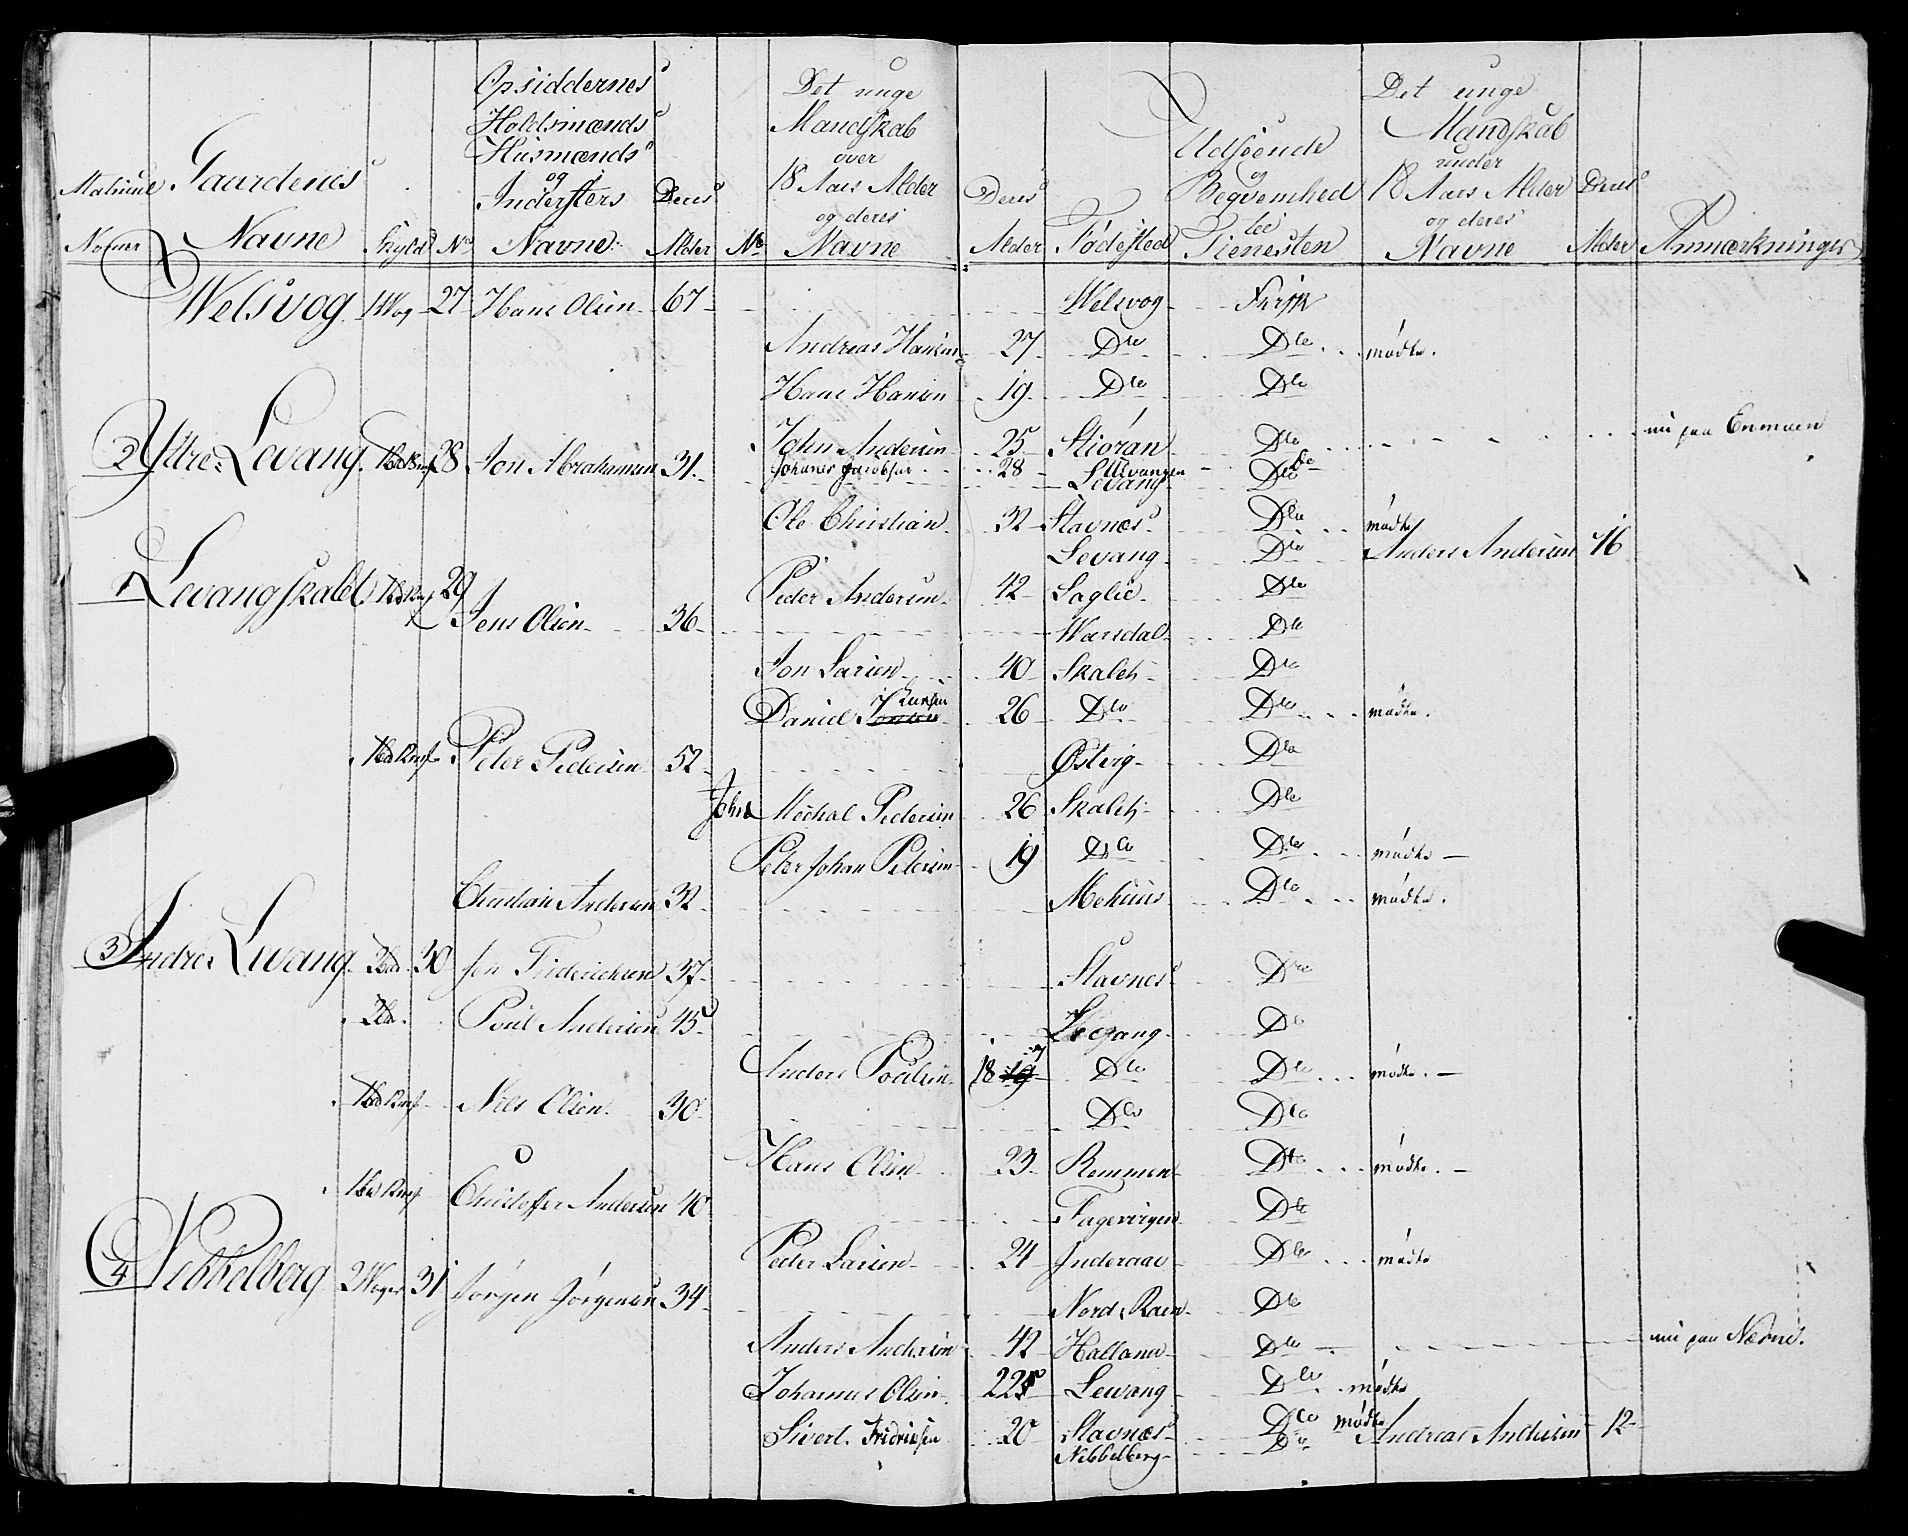 Matricul Nommer | Gaardenes Navne | Skyld | No | Opsiddernes Holdsmænds Husmænds og Indersters Navne | Deres Alder | No | Det unge Mandskab over 18 Aars Alder og deres Navne | Deres Alder | Fødested | Udseende og Beqvemhed til Tienesten | Det unge Mandskab under 18 Aars Alder og deres Navne | Deres Alder | Anmærkninger
1 Welsvog 1 Wog 27 Hans Olsen 67 Welsvog Frisk
Andreas Hansen 27 Dto Dto mødte.
Hans Hansen 19 Dto Dto
2 Yttre Levang 28 Jon Abrahamsen 31 John Andersen 25 Stioran Dto nu paa Enmoen
Johanes Jacobsen 28 Ullvangen Do
Levang Dto
Ole Christian 32 Stavnes Dto mødte
Levang Dto Anders Andersen 16
1 Levangskalet 29 Peder Andersen 42 Soglie Dto
Jens Olsen 36 Wærdal Dto
Jon Larsen 40 Skalet Dto
Daniel Larsen 26 Dto Dto mødte.
Peter Pedersen 52 Østvig Dto
John Mickal Pedersen 26 Skalet Dto
Peter Johan Petersen 19 Dto Dto mødte
Christian Andersen 32 Mehuus Dto mødte.
3 Indre Levang 30 Jon Friderichsen 37 Stavnes Dto
Poul Andersen 45 Levang Do
Anders Poulsen 18 19 Dto Dto mødte.
Niels Olsen 30 Dto Dto
Hans Olsen 23 Remmen Dto mødte.
Christoffer Andersen 40 Fagervigen Dto
4 Nebbelberg 2 Woger 31 Peder Larsen 24 Inderaae Dto mødte
Jørgen Jørgensen 34 Nord Raen Dto
Anders Andersen 42 Halland Dto nu paa Nærøe.
Johannes Olsen 22 Levang Dto mødte
Sivert Fridrichsen 20 Stavnes Dto mødte
Nebbelberg Do Andreas Andersen 12